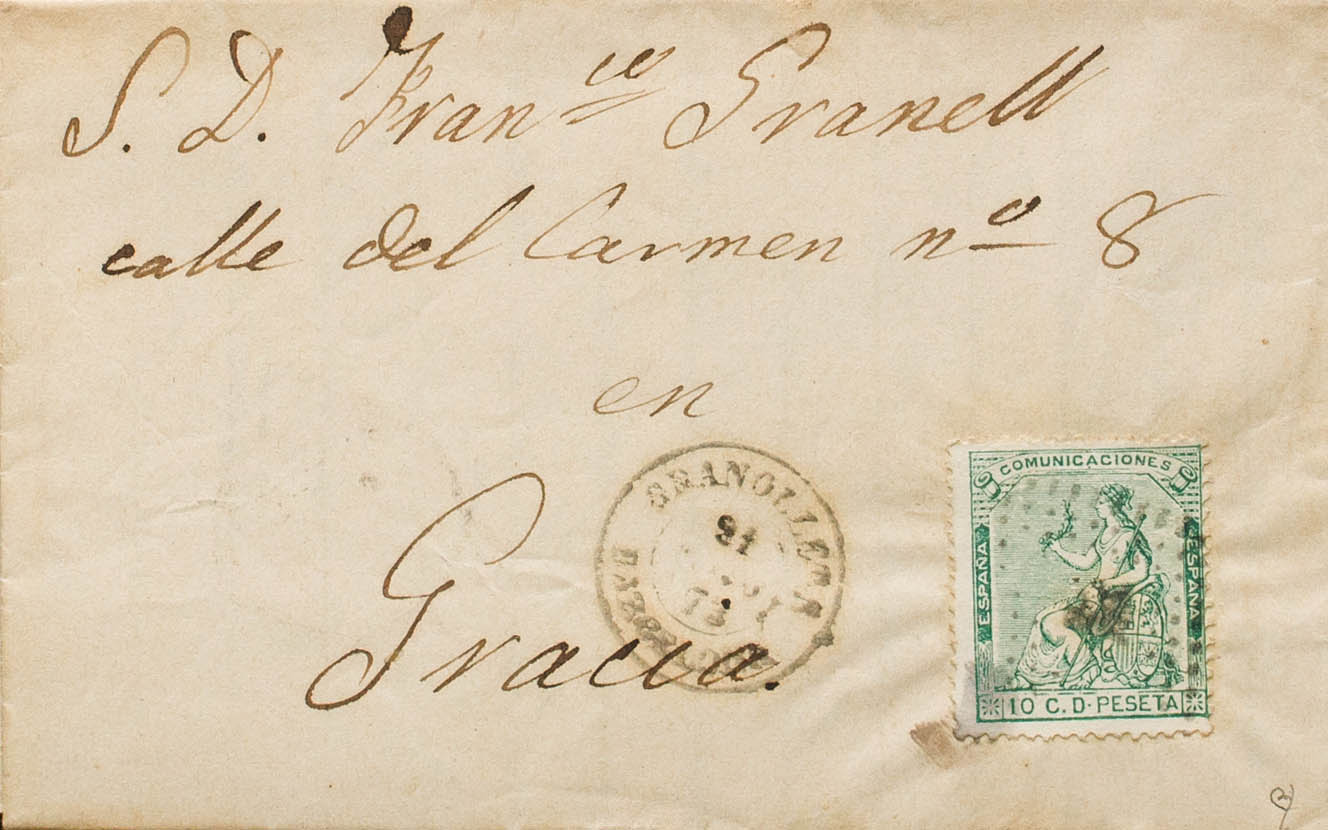 S. D. Franco Granell
calle del Carmen nº 8
en
Gracia.
GRANOLLERS
BARCELONA
COMUNICACIONES
ESPAÑA
ESPAÑA
10 C. D. PESETA